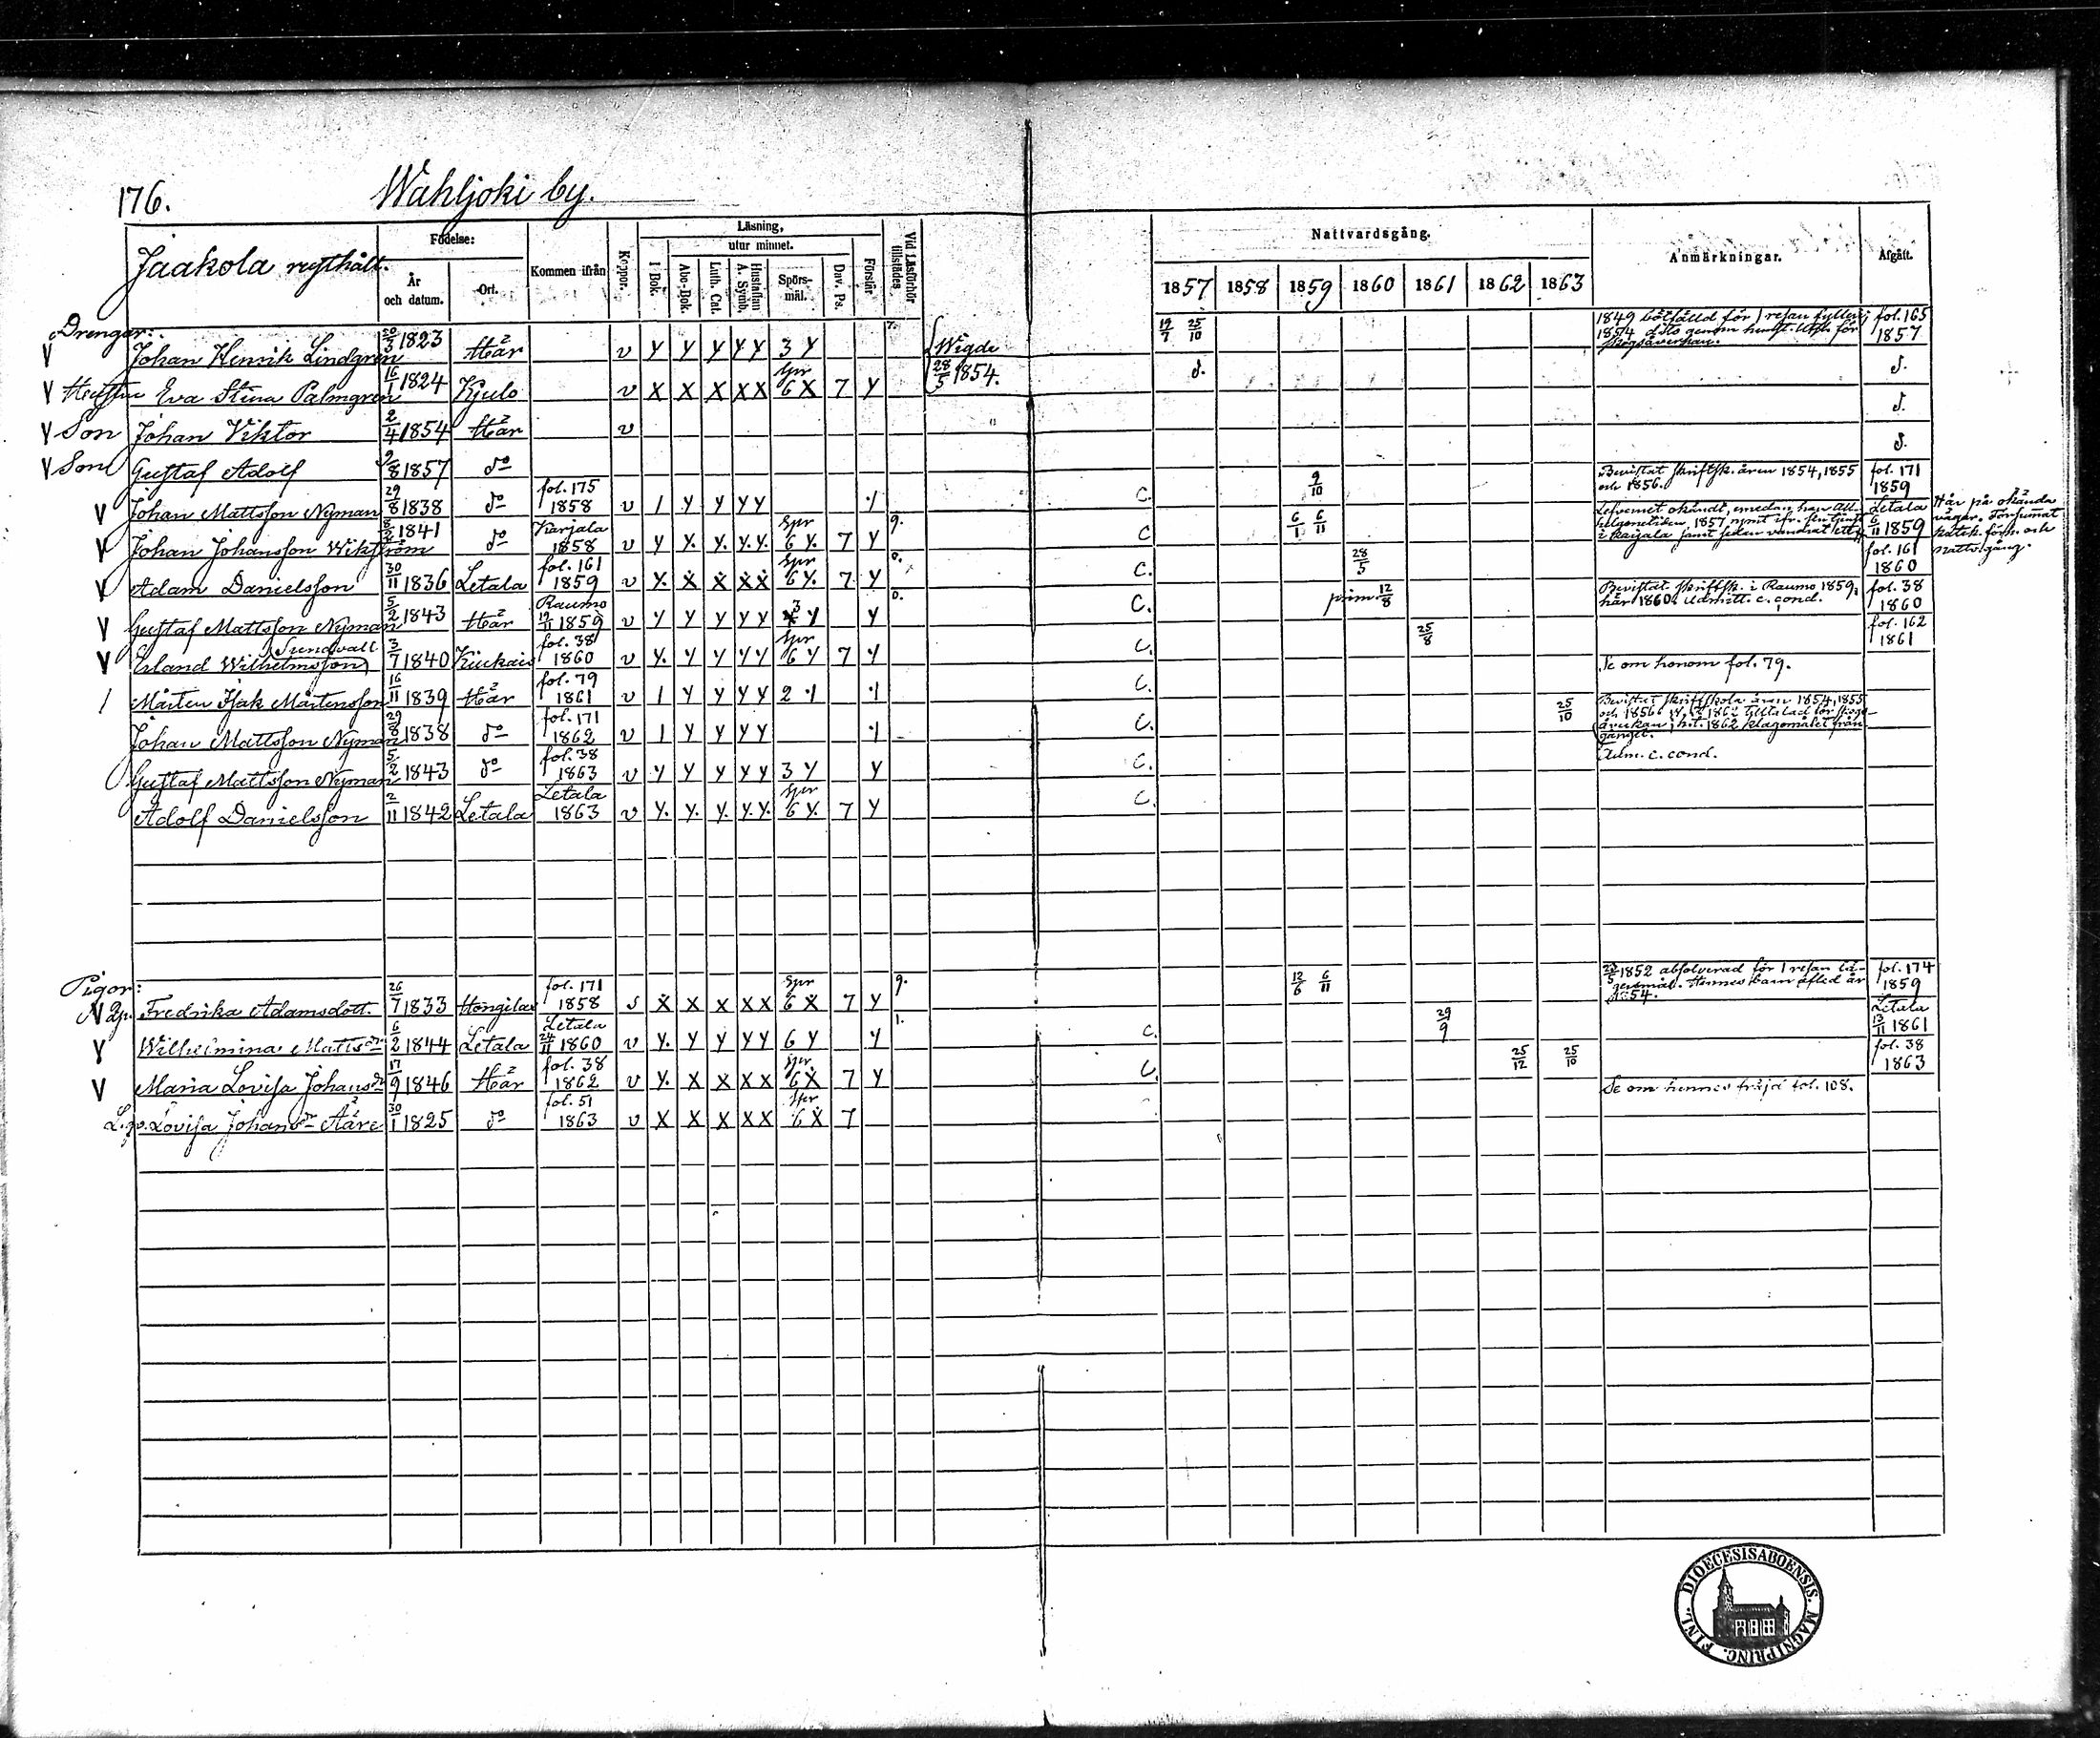 176. Wahljoki by.
Jaakola rusthåll.
Födelse: År och datum. Ort.
Kommen ifrån
Koppor.
Läsning, utur minnet.
I Bok. Abc-Bok. Luth. Cat. Hustaflan A. Symb. Spörs-mål. Dav. Ps. Förstår
Vid Läsförhör tillstädes
Nattvardsgång.
1857 1858 1859 1860 1861 1862 1863
Anmärkningar.
Afgått.
Drengar:
V Johan Henrik Lindgren 1823 Här v y y y y y 3 y 7. Wigde 19/7 25/10 1849 bötfälld för 1 resan fylleri; fol. 165
1854 dito genom för 1857
V Hustru Eva Stina Palmgren 16/1 1824 Kjulo v x x x x x Spr 6 x 7 y 28/5 1854. d. d.
V Son Johan Viktor 2/4 1854 Här v d.
V Son Gustaf Adolf 9/8 1857 do d.
V Johan Mattsson Nyman 29/8 1838 do fol. 175 1858 v 1 y y y y ·1 C. 9/10 Bevistat skriftsk. åren 1854, 1855 och 1856. fol. 171 1859
V Johan Johansson Wikström 8/2 1841 do Karjala 1858 v y y. y. y. y. Spr 6 y. 7 y 9. C 6/1 6/11 Lefvernet okändt, emedan han 1857 Letala 6/11 1859
Här på okända vägar. Försummat katek. förh. och nattv. gång.
V Adam Danielsson 30/11 1836 Letala fol. 161 1859 v y. x x x x Spr 6 y. 7 y 0. C. 28/5 fol. 161 1860
V Gustaf Mattsson Nyman 5/2 1843 Här Raumo 19/11 1859 v y y y y y 3 y y 0. C. prim. 12/8 Bevistat skriftsk. i Raumo 1859, här 1860. Admitt. c. cond. fol. 38 1860
Sundvall
V Erland Wilhelmsson 3/7 1840 fol. 38 1860 v y. y y y y Spr 6 y 7 y C. 25/8 fol. 162 1861
/ Mårten Isak Mårtensson 16/11 1839 Här fol. 79 1861 v 1 y y y y 2 ·1 ·1 C. Se om honom fol. 79.
Johan Mattsson Nyman 29/8 1838 do fol. 171 1862 v 1 y y y y ·1 C. 25/10 Bevistat skriftskola åren 1854, 1855 och 1856. 1862 tilltalad för
Gustaf Mattsson Nyman 5/2 1843 do fol. 38 1863 v y y y y y 3 y y C. Adm. c. cond.
Adolf Danielsson 2/11 1842 Letala Letala 1863 v y. y. y. y. y. Spr 6 y. 7 y C.
Pigor:
V Fredrika Adamsdott. 26/7 1833 fol. 171 1858 s x x x x x Spr 6 x 7 y 9. 12/6 6/11 23/5 1852 absolverad för 1 resan lä-
gersmål. Hennes barn afled år 1854. fol. 174 1859
V Wilhelmina Mattsdr 6/2 1844 Letala Letala 24/11 1860 v y. y y y y 6 y y 1. C. 29/9 Letala 13/11 1861
V Maria Lovisa Johansdr 17/9 1846 Här fol. 38 1862 v y. x x x x Spr 6 x 7 y C. 25/12 25/10 fol. 38 1863
Lovisa Johansdr 30/1 1825 do fol. 51 1863 v x x x x x Spr 6 x 7 Se om hennes frejd fol. 108.
DIOECESIS ABOENSIS. MAGNI PRINC. FINL.